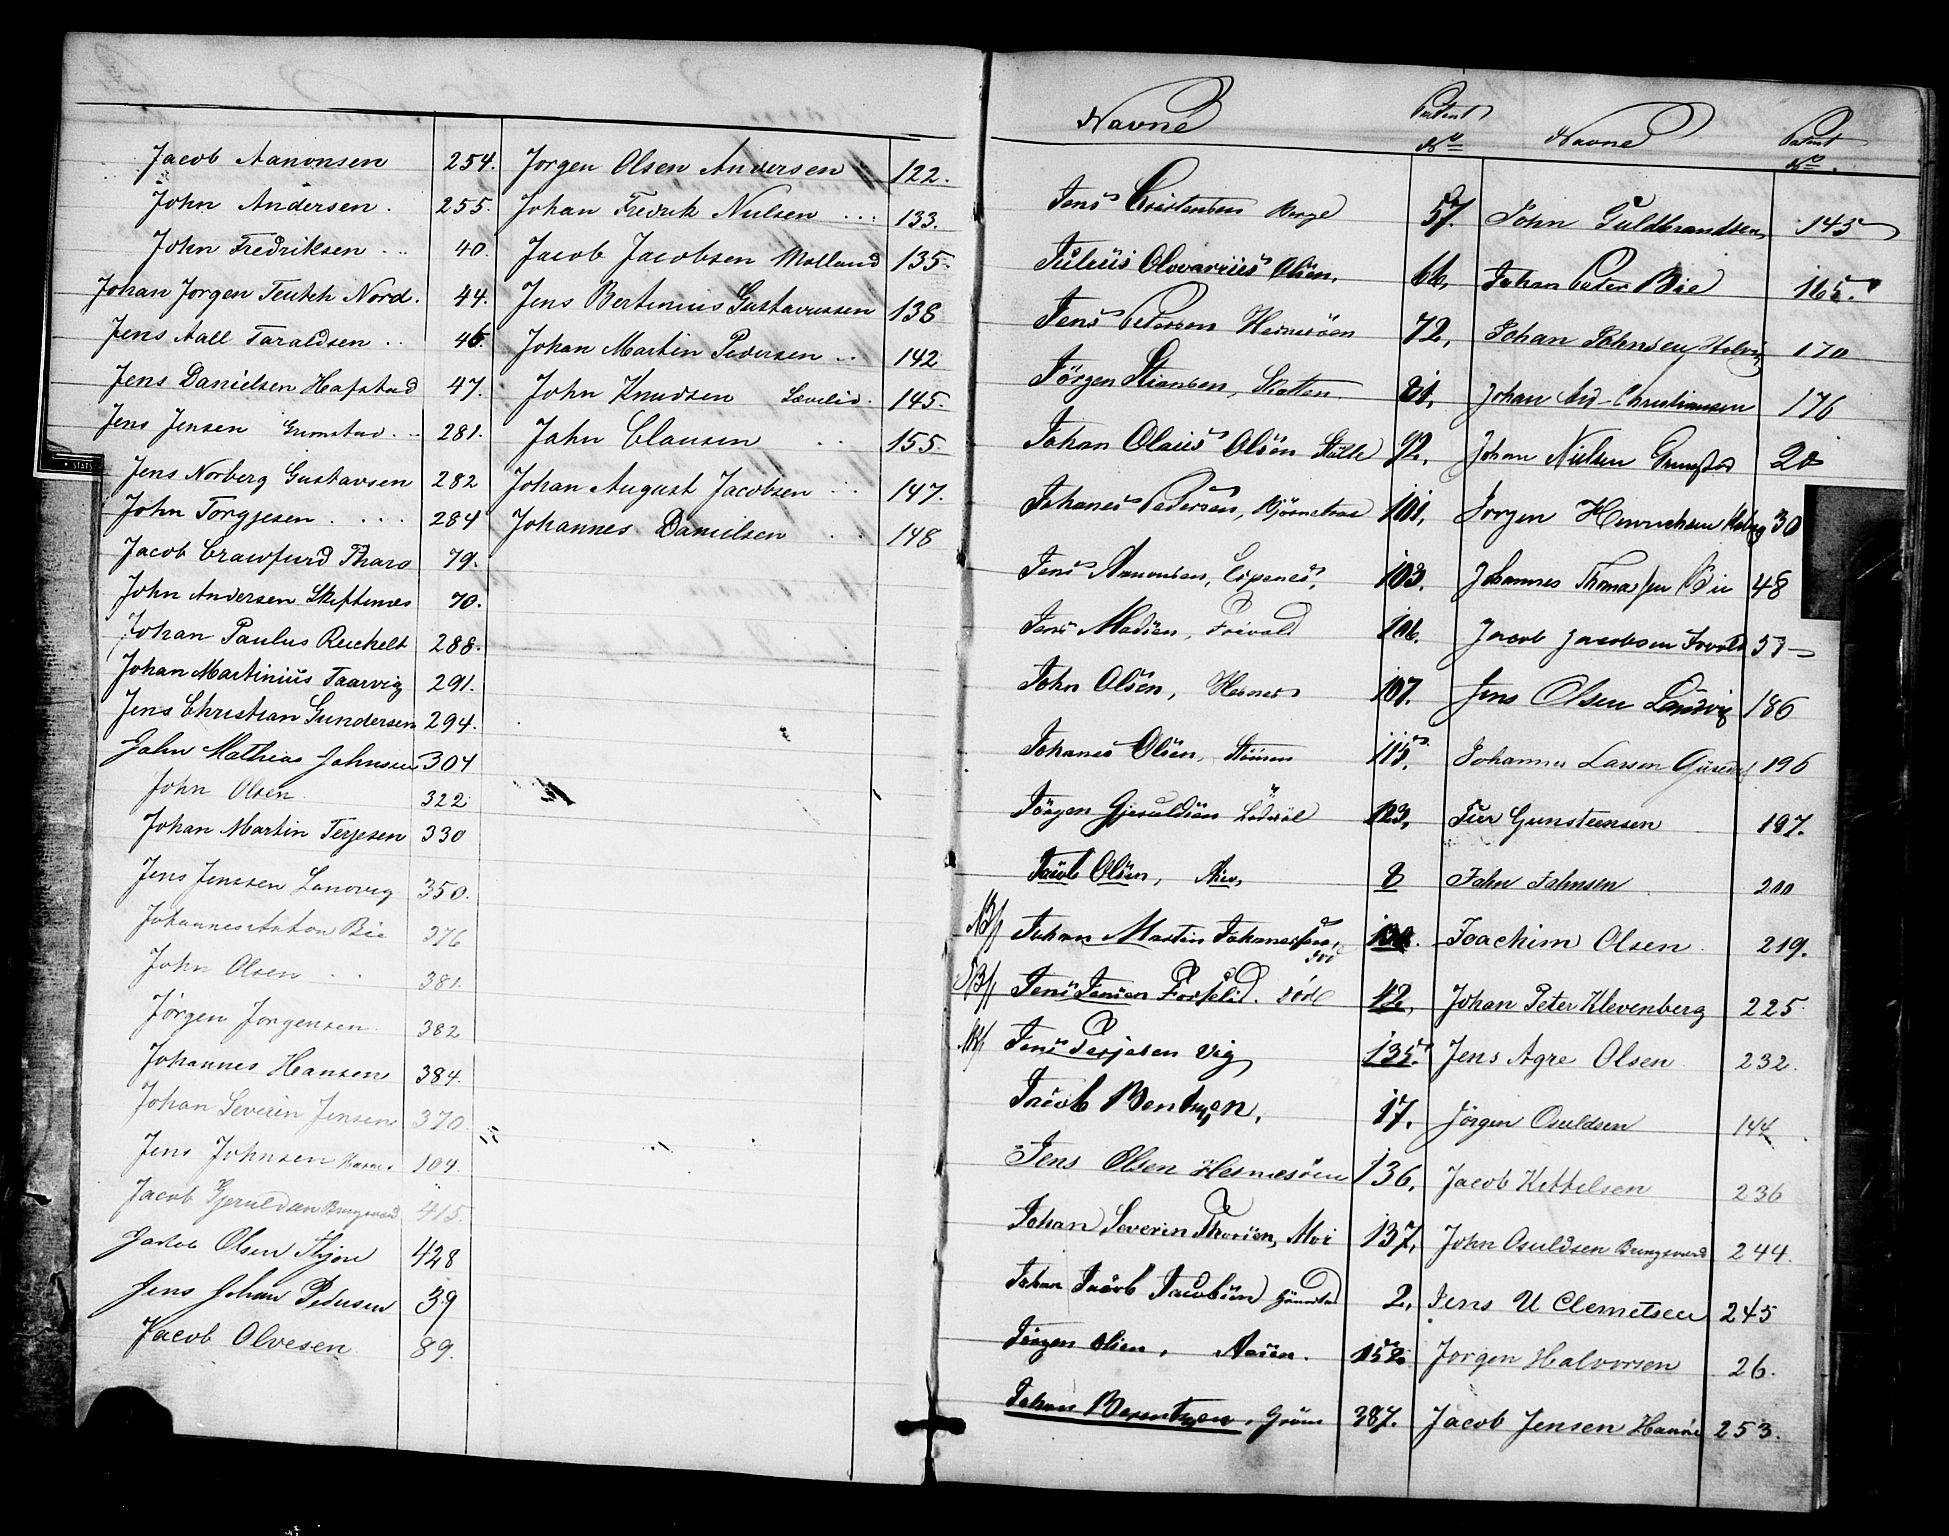 Jacob Aanonsen 254.
John Andersen. 255.
John Fredriksen ... 40.
Johan Jorgen Teutch Nord. 44.
Jens Aall Taraldsen .. 46.
Jens Danielsen Hafstad 47.
Jens Jensen Grimstad... 281.
Jens Norberg Gustavsen 282
John Torgjesen .... 284
Jacob Crawfurd Tharo 79.
John Andersen Skiftenes 70.
Johan Paulus Reichelt 288.
Johan Martinius Taarvig 291.
Jens Christian Gundersen 294.
John Mathias Johnsen 304
John Olsen 322
Johan Martin Terjesen 330
Jens Jenssen Landvig 350.
Johannes Anton Bie 376
John Olsen .. 381.
Jørgen Jørgensen. 382
Johannes Hansen 384.
Johan Severin Jensen 370.
Jens Johnsen 104.
Jacob Gjeruldsen 415.
Jakob Olsen 428
Jens Johan Pedersen 39
Jacob Olvesen 89.
Jorgen Olsen Andersen 122.
Johan Fredrik Nielsen ... 133.
Jacob Jacobsen Molland 135.
Jens Bertinius Gustavussen 138
Johan Martin Pedersen .. 142
John Knudsen 145.
John Clausen .. 155.
Johan August Jacobsen ... 147.
Johannes Danielsen .. 148
Navne Patent No Navne Patent No.
Jens Cristensen Berge 57.
Julius Olovarius Olsen, 66,
Jens Pedersen Hesnesöen 72,
Jörgen Stiansen, 81,
Johan Olaus Olsen 92,
Johanes Pedersen, 101,
Jens Aanonsen, Espenes, 103.
Jens Madsen, Frivold 106.
John Olsen, Hesnes 107.
Johanes Olsen, 115.
Jörgen Gjeruldsen 123,
Jacob Olsen, 8
NB/ Johan Martin Johannessen,
NB/ Jens Jensen 42,
NB/ Jens Terjesen Vig 135.
Jacob Bentzen, 17,
Jens Olsen Hesnesöen 136,
Johan Severin Thorsen, 137,
Johan Jacob Jacobsen Grimstad 2,
Jörgen Olsen, 152
Johan Berentzen, 387.
John Guldbrandsen, 145
Johan Peter Bie 165.
Johan Johnsen 170
Johan And- Christiansen 176
Johan Nielsen Grimstad 20
Jorgen Henrichsen 30
Johannes Thomassen Bie 48
Jacob Jacobsen Frivold 57
Jens Olsen Landvig 186
Johannes Larsen 196
Iver Gunsteensen 197.
John Johnsen 200
Joachim Olsen 219.
Johan Peter Klevenberg 225
Jens Agre Olsen 232.
Jörgen Osuldsen 144
Jacob Kittelsen 236
John Osuldsen Bringsværd 244.
Jens U Clemetsen 245
Jorgen Halvorsen 26.
Jacob Jensen 253.